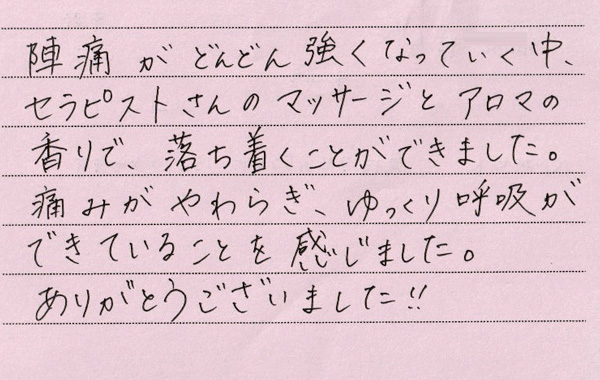 陣痛がどんどん強くなっていく中、
セラピストさんのマッサージとアロマの
香りで、落ち着くことができました。
痛みがやわらぎ、ゆっくり呼吸が
できていることを感じました。
ありがとうございました!!